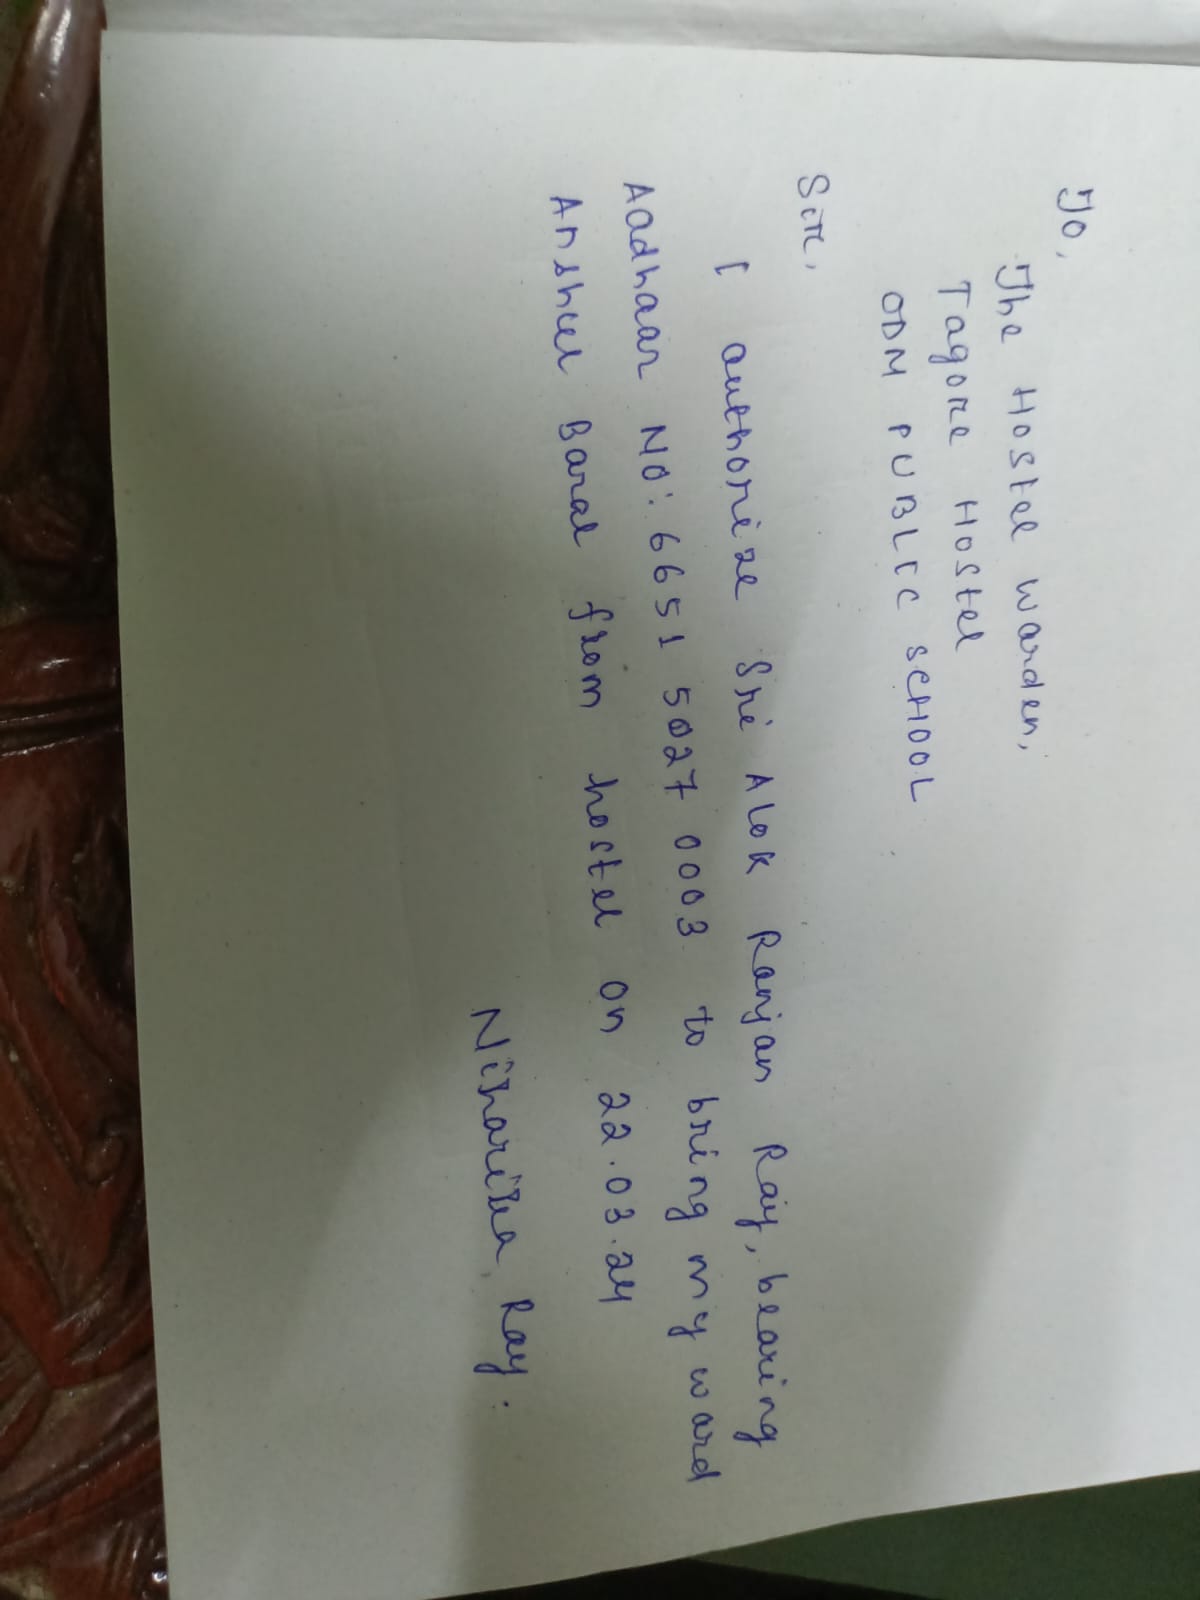 To,
The Hostel warden,
Tagore Hostel
ODM PUBLIC SCHOOL
Sir,
I authorize Sri Alok Ranjan Ray, bearing
Aadhaar No: 6651 5027 0003 to bring my ward
Anshul Baral from hostel on 22.03.24
Niharika Ray.